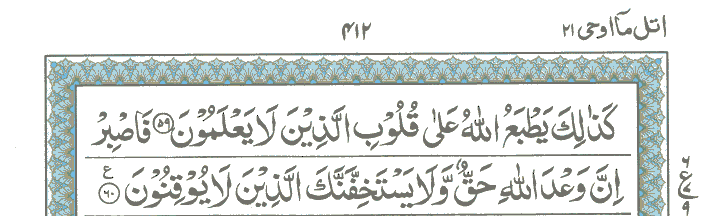 اتل مآ اوحی ۲۱
۴۱۲
كَذٰلِكَ يَطْبَعُ اللّٰهُ عَلٰى قُلُوْبِ الَّذِيْنَ لَا يَعْلَمُوْنَ ۵۹ فَاصْبِرْ
اِنَّ وَعْدَ اللّٰهِ حَقٌّ وَّلَا يَسْتَخِفَّنَّكَ الَّذِيْنَ لَا يُوْقِنُوْنَ ۶۰ ع
۶
ع
۷
۹